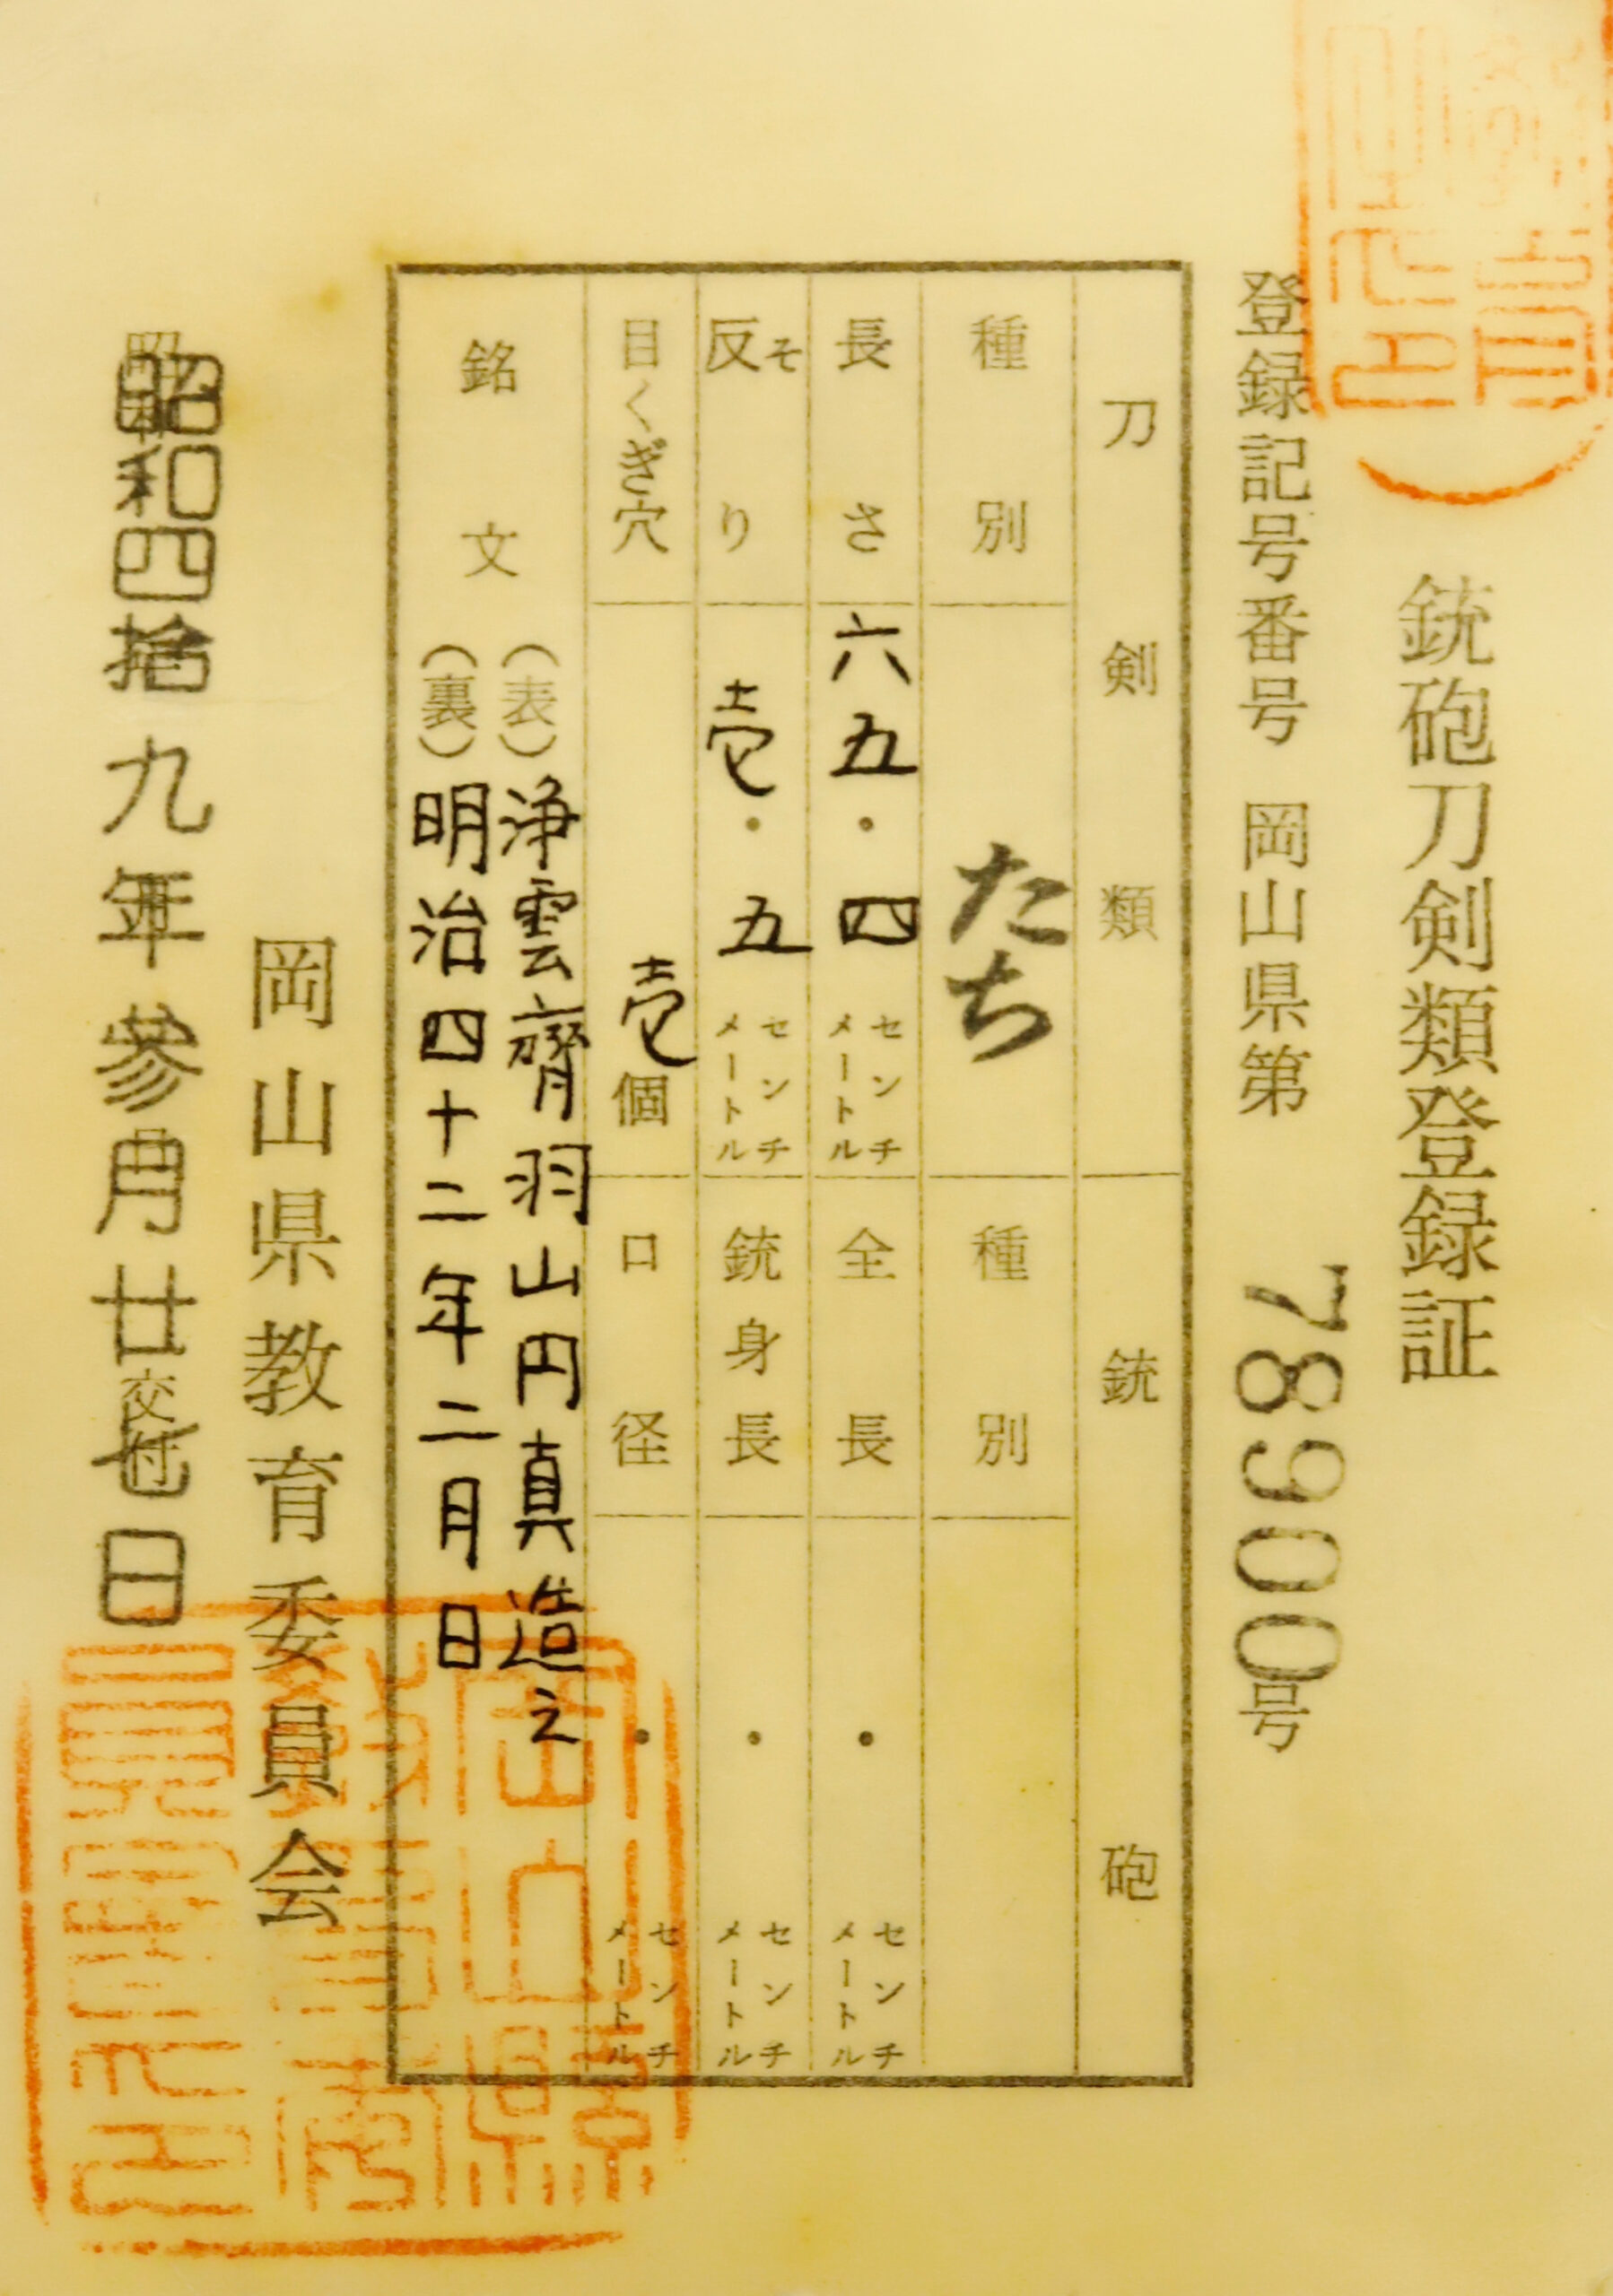 銃砲刀剣類登録証
登録記号番号 岡山県第 78900号
刀剣類 銃砲
種別 たち 種別
長さ 六五・四 センチメートル 全長 ・ センチメートル
反り そ 壱・五 センチメートル 銃身長 ・ センチメートル
目くぎ穴 壱個 口径 ・ センチメートル
銘文 (表) 浄雲齊羽山円真造之
(裏) 明治四十二年二月日
岡山県教育委員会
昭和四拾九年参月廿七日
交付